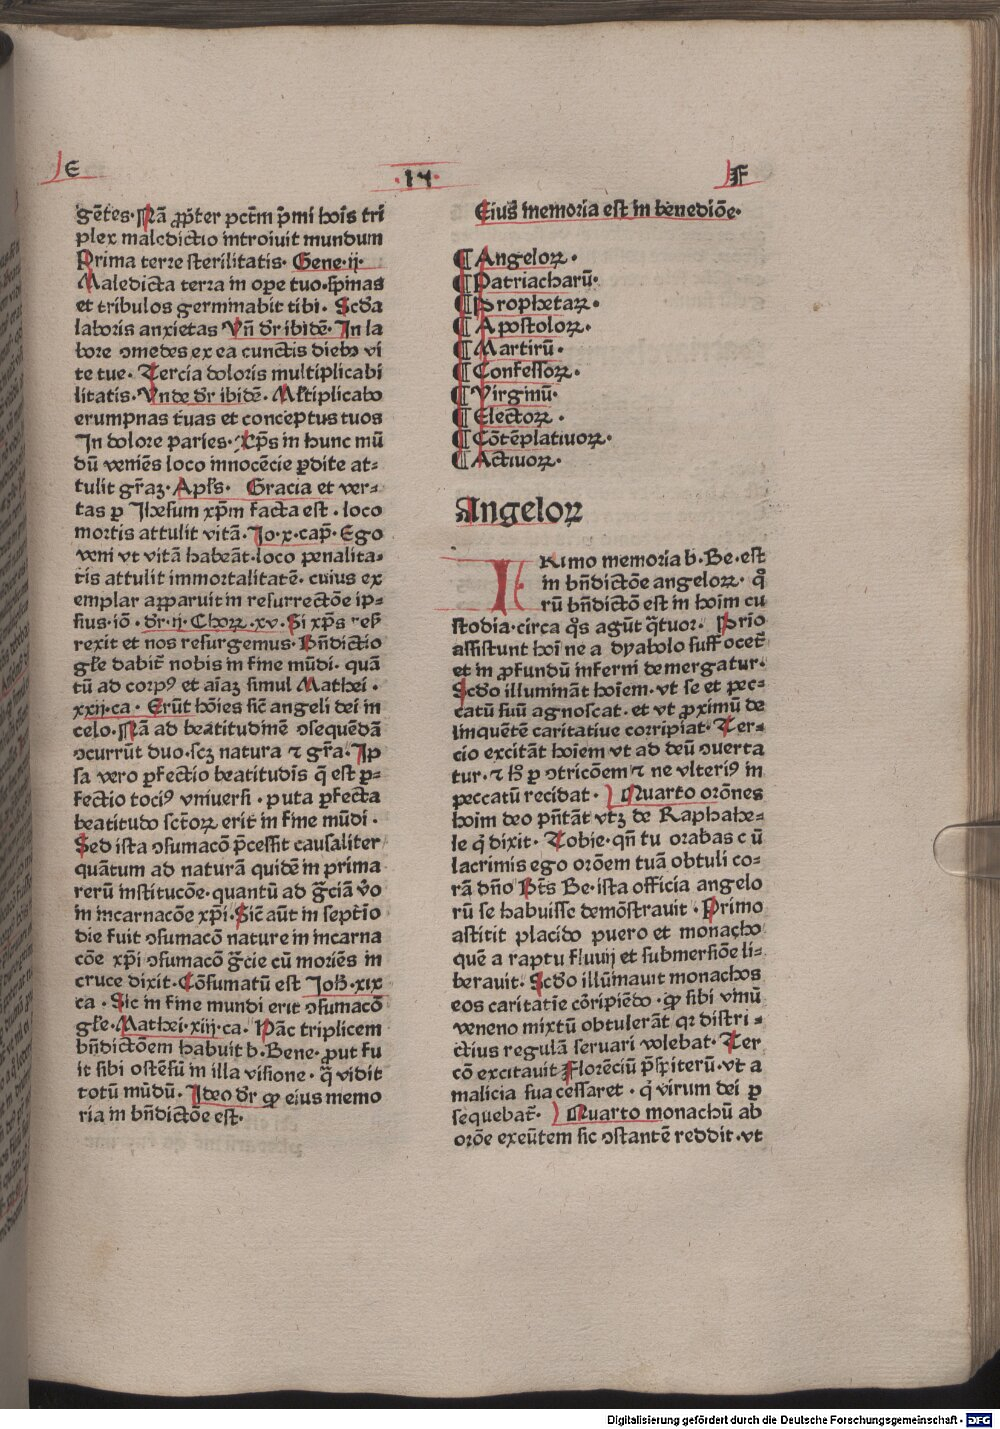 E
·14·
F
gẽtes· Nã ꝓpter pctm̃ p̃mi hoĩs tri
plex maledictio introiuit mundum
Prima terre sterilitatis· Gene·ij·
Maledicta terra in oꝑe tuo·spinas
et tribulos germinabit tibi· Scd̃a
laboris anxietas Vñ dr̃ ibidẽ· In la
bore ↄmedes ex ea cunctis diebꝰ vi
te tue· Tercia doloris multiplicabi
litatis· Vnde dr̃ ibidẽ· Ml̃tiplicabo
erumpnas tuas et conceptus tuos
In dolore paries· Xp̃s in hunc mũ
dũ veniẽs loco innocẽcie ꝑdite at⸗
tulit gr̃aꝫ· Apl̃s· Gracia et ver⸗
tas ꝑ Jhesum xp̃m facta est· loco
mortis attulit vitã· Jo·x·cap̃· Ego
veni vt vitã habeãt·loco penalita⸗
tis attulit immortalitatẽ· cuius ex
emplar apparuit in resurrectõe ip⸗
sius·iõ· dr̃·ij·Choꝝ·xv· Si xp̃s res̃
rexit et nos resurgemus· Bñdictio
gl̃e dabit̃ nobis in fine mũdi· quã
tũ ad corpꝰ et aĩaꝫ simul Mathei·
xxij·ca· Erũt hoĩes sic̃ angeli dei in
celo· Nã ad beatitudinẽ ↄsequẽdã
ↄcurrũt duo·scꝫ natura ⁊ gr̃a· Ip
sa vero ꝑfectio beatitudĩs q̃ est ꝑ⸗
fectio tociꝰ vniuersi· puta ꝑfecta
beatitudo sct̃oꝝ erit in fine mũdi·
Sed ista ↄsumacõ p̃cessit causaliter
quãtum ad naturã quidẽ in prima
rerũ institucõe·quantũ ad gr̃ciã v̾o
in incarnacõe xp̃i· Sic̃ aũt in septĩo
die fuit ↄsumacõ nature in incarna
cõe xp̃i ↄsumacõ gr̃cie cũ moriẽs in
cruce dixit· Cõsumatũ est Joh̃·xix
ca· Sic in fine mundi erit ↄsumacõ
gl̃e· Mathei·xiij·ca· Hãc triplicem
bñdictõem habuit b·Bene·ꝓut fu
it sibi ostẽsũ in illa visione· qñ vidit
totũ mũdũ· Ideo dr̃ ꝙ eius memo
ria in bñdictõe est·
Eiuꝰ memoria est in benediõe·
¶ Angeloꝝ·
¶ Patriacharũ·
¶ Prophetaꝝ·
¶ Apostoloꝝ·
¶ Martirũ·
¶ Confessoꝝ·
¶ Virginũ·
¶ Electoꝝ·
¶ Cõtẽplatiuoꝝ·
¶ Actiuoꝝ·
Angeloꝝ
PRimo memoria b·Be·est
in bñdictõe angeloꝝ· qͦ
rũ bñdictõ est in hoim cu
stodia·circa q̃s agũt q̃tuor· Prĩo
assistunt hoĩ ne a dyabolo suffocet̃
et in ꝓfundũ inferni demergatur·
Scd̃o illuminãt hoĩem·vt se et pec⸗
catũ suũ agnoscat·et vt ꝓximũ de
linquẽtẽ caritatiue corripiat· Ter⸗
cio excitãt hoĩem vt ad deũ ↄuerta
tur·⁊ h̾ ꝑ ↄtricõem ⁊ ne vlteriꝰ in
peccatũ recidat· Quarto orões
hoim deo pñtãt vtꝫ de Raphahe⸗
le q̃ dixit· Tobie·qñ tu orabas cũ
lacrimis ego orõem tuã obtuli co⸗
rã dño Bt̃s Be·ista officia angelo
rũ se habuisse demõstrauit· Primo
astitit placido puero et monacho
quẽ a raptu fluuij et submersiõe li⸗
berauit· Scd̃o illũinauit monachos
eos caritatie cõripiẽdo·ꝙ sibi vinũ
veneno mixtũ obtulerãt qꝛ distri⸗
ctius regulã seruari volebat· Ter
cõ excitauit Florẽciũ p̃spiterũ·vt a
malicia sua cessaret· q̃ virum dei ꝑ
sequebat̃· Quarto monachũ ab
orõe exeũtem sic ↄstantẽ reddit·vt
Digitalisierung gefördert durch die Deutsche Forschungsgemeinschaft · DFG